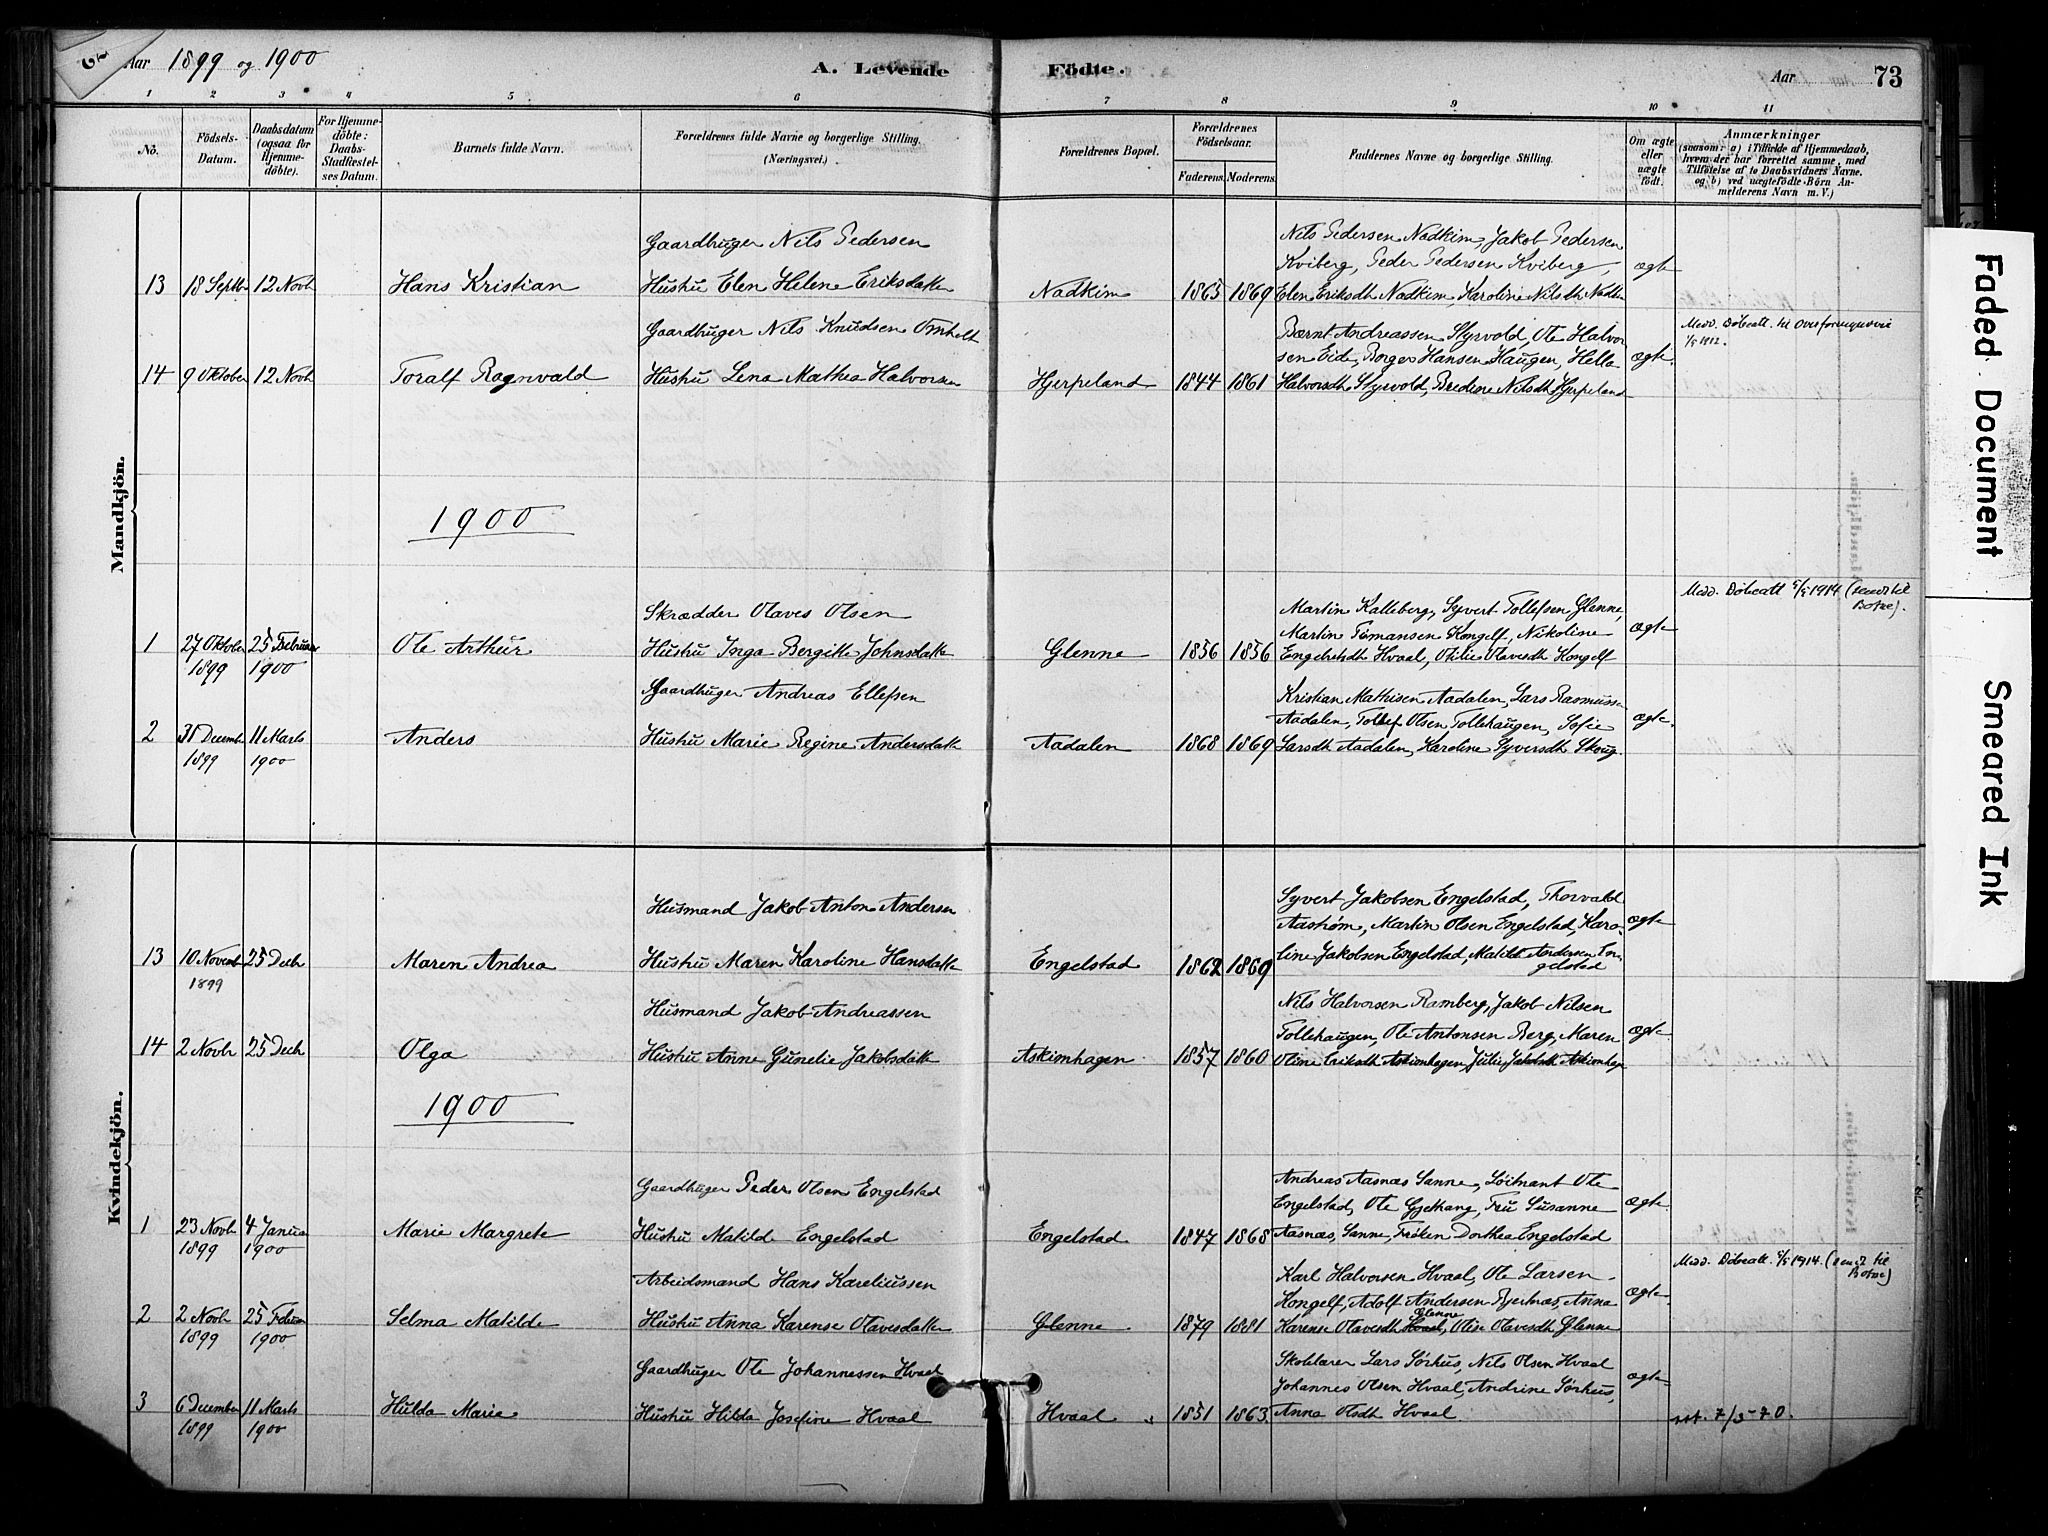 Aar 1899 og 1900
A. Levende Födte.
Aar 73
1 2 3 4 5 6 7 8 9 10 11
No.
Födsels-Datum.
Daabsdatum (ogsaa for Hjemmedöbte).
For Hjemmedöbte: Daabs-Stadfæstelses Datum.
Barnets fulde Navn.
Forældrenes fulde Navne og borgerlige Stilling.
(Næringsvei.)
Forældrenes Bopæl.
Forældrenes Födselsaar.
Faderens. Moderens.
Faddernes Navne og borgerlige Stilling.
Om ægte eller uægte födt.
Anmærkninger
(saasom: a) i Tilfælde af Hjemmedaab, hvem der har forrettet samme, med Tilföielse af to Daabsvidners Navne. og b) ved uægtefödte Börn Anmelderens Navn m. V.)
Mandkjön.
Gaardbruger Nils Pedersen
Nils Pedersen Nadkim, Jakob Pedersen
Kviberg, Peder Pedersen Kviberg, ægte
13 18 Septbr 12 Novb Hans Kristian Hustru Elen Helene Eriksdatter Nadkim 1865 1869 Elen Eriksdt Nadkim, Karoline Nilsdt Nadkim
Gaardbruger Nils Knudsen Omholt
Bernt Andreassen Styrvold, Ole Halvor-
sen Eide, Borger Hansen Haugen, Hella ægte.
14 9 Oktober 12 Novb Toralf Ragnvald Hustru Lena Mathea Halvorsen Hjerpeland 1844 1861 Halvorsdt Styrvold, Bredine Nilsdt Hjerpeland
1900
Medd. Döbeatt. 5/5 1914 (sendt til Botne).
Skrædder Olaves Olsen
Martin Kalleberg, Syvert Tollefsen Glenne,
Martin Tomansen Kongelf, Nikoline ægte
1 27 Oktober 1899 25 Februar 1900 Ole Arthur Hustru Inga Bergitte Johnsdatter Glenne 1856 1856 Engebretsdt Hvaal, Otilie Olavesdt Kongelf
Gaardbruger Andreas Ellefsen
Kristian Mathisen Aadalen, Lars Rasmussen
Aadalen, Tollef Olsen Tollehaugen, Sofie ægte.
2 31 Decembr 1899 11 Marts 1900 Anders Hustru Marie Regine Andersdatter Aadalen 1868 1869 Larsdt Aadalen, Karoline Syversdt Skoug.
Kvindekjön.
Husmand Jakob Anton Andersen
Syvert Jakobsen Engelstad, Thorvald
Aashøm, Martin Olsen Engelstad, Karo- ægte
13 10 Novemb 1899 25 Decb Maren Andrea Hustru Maren Karoline Hansdatter Engelstad 1862 1869 line Jakobsen Engelstad, Matilde Andersen Engelstad
Husmand Jakob Andreassen
Nils Halvorsen Ramberg, Jakob Nilsen
Tollehaugen, Ole Antonsen Berg, Maren ægte.
14 2 Novb 25 Decb Olga Hustru Anne Gunelie Jakobsdatter Askimhagen 1857 1860 Oline Eriksdt Askimhagen, Julie Jakobsdt Askimhagen
1900
Gaardbruger Peder Olsen Engelstad
Andreas Aasnæs Sanne, Løitnant Ole
Engelstad, Ole Gjethang, Fru Susanne ægte.
1 23 Novb 1899 4 Januar 1900 Marie Margrete Hustru Matilde Engelstad Engelstad 1847 1868 Aasnæs, Sanne, Frøken Dorthea Engelstad
Medd. Döbeatt. 5/5 1914. (sendt til Botne)
Arbeidsmand Hans Kareliussen
Karl Halvorsen Hvaal, Ole Larsen
Kongelf, Adolf Andersen Bjertnæs, Anna ægte.
2 2 Novb 1899 25 Februar 1900 Selma Matilde Hustru Anna Karense Olavesdatter Glenne 1879 1881 Karense Olavesdt Hvaal Glenne, Otise Olavesdt Glenne
Gaardbruger Ole Johannessen Hvaal
Skolelærer Lars Sørhus, Nils Olsen Hvaal
Johannes Olsen Hvaal, Andrine Sørhus, ægte
3 6 December 1899 11 Marts 1900 Hulda Marie Hustru Hilda Josefine Hvaal Hvaal 1851 1863 Anna Olsdt Hvaal att. 7/3-70.
Faded Document
Smeared Ink